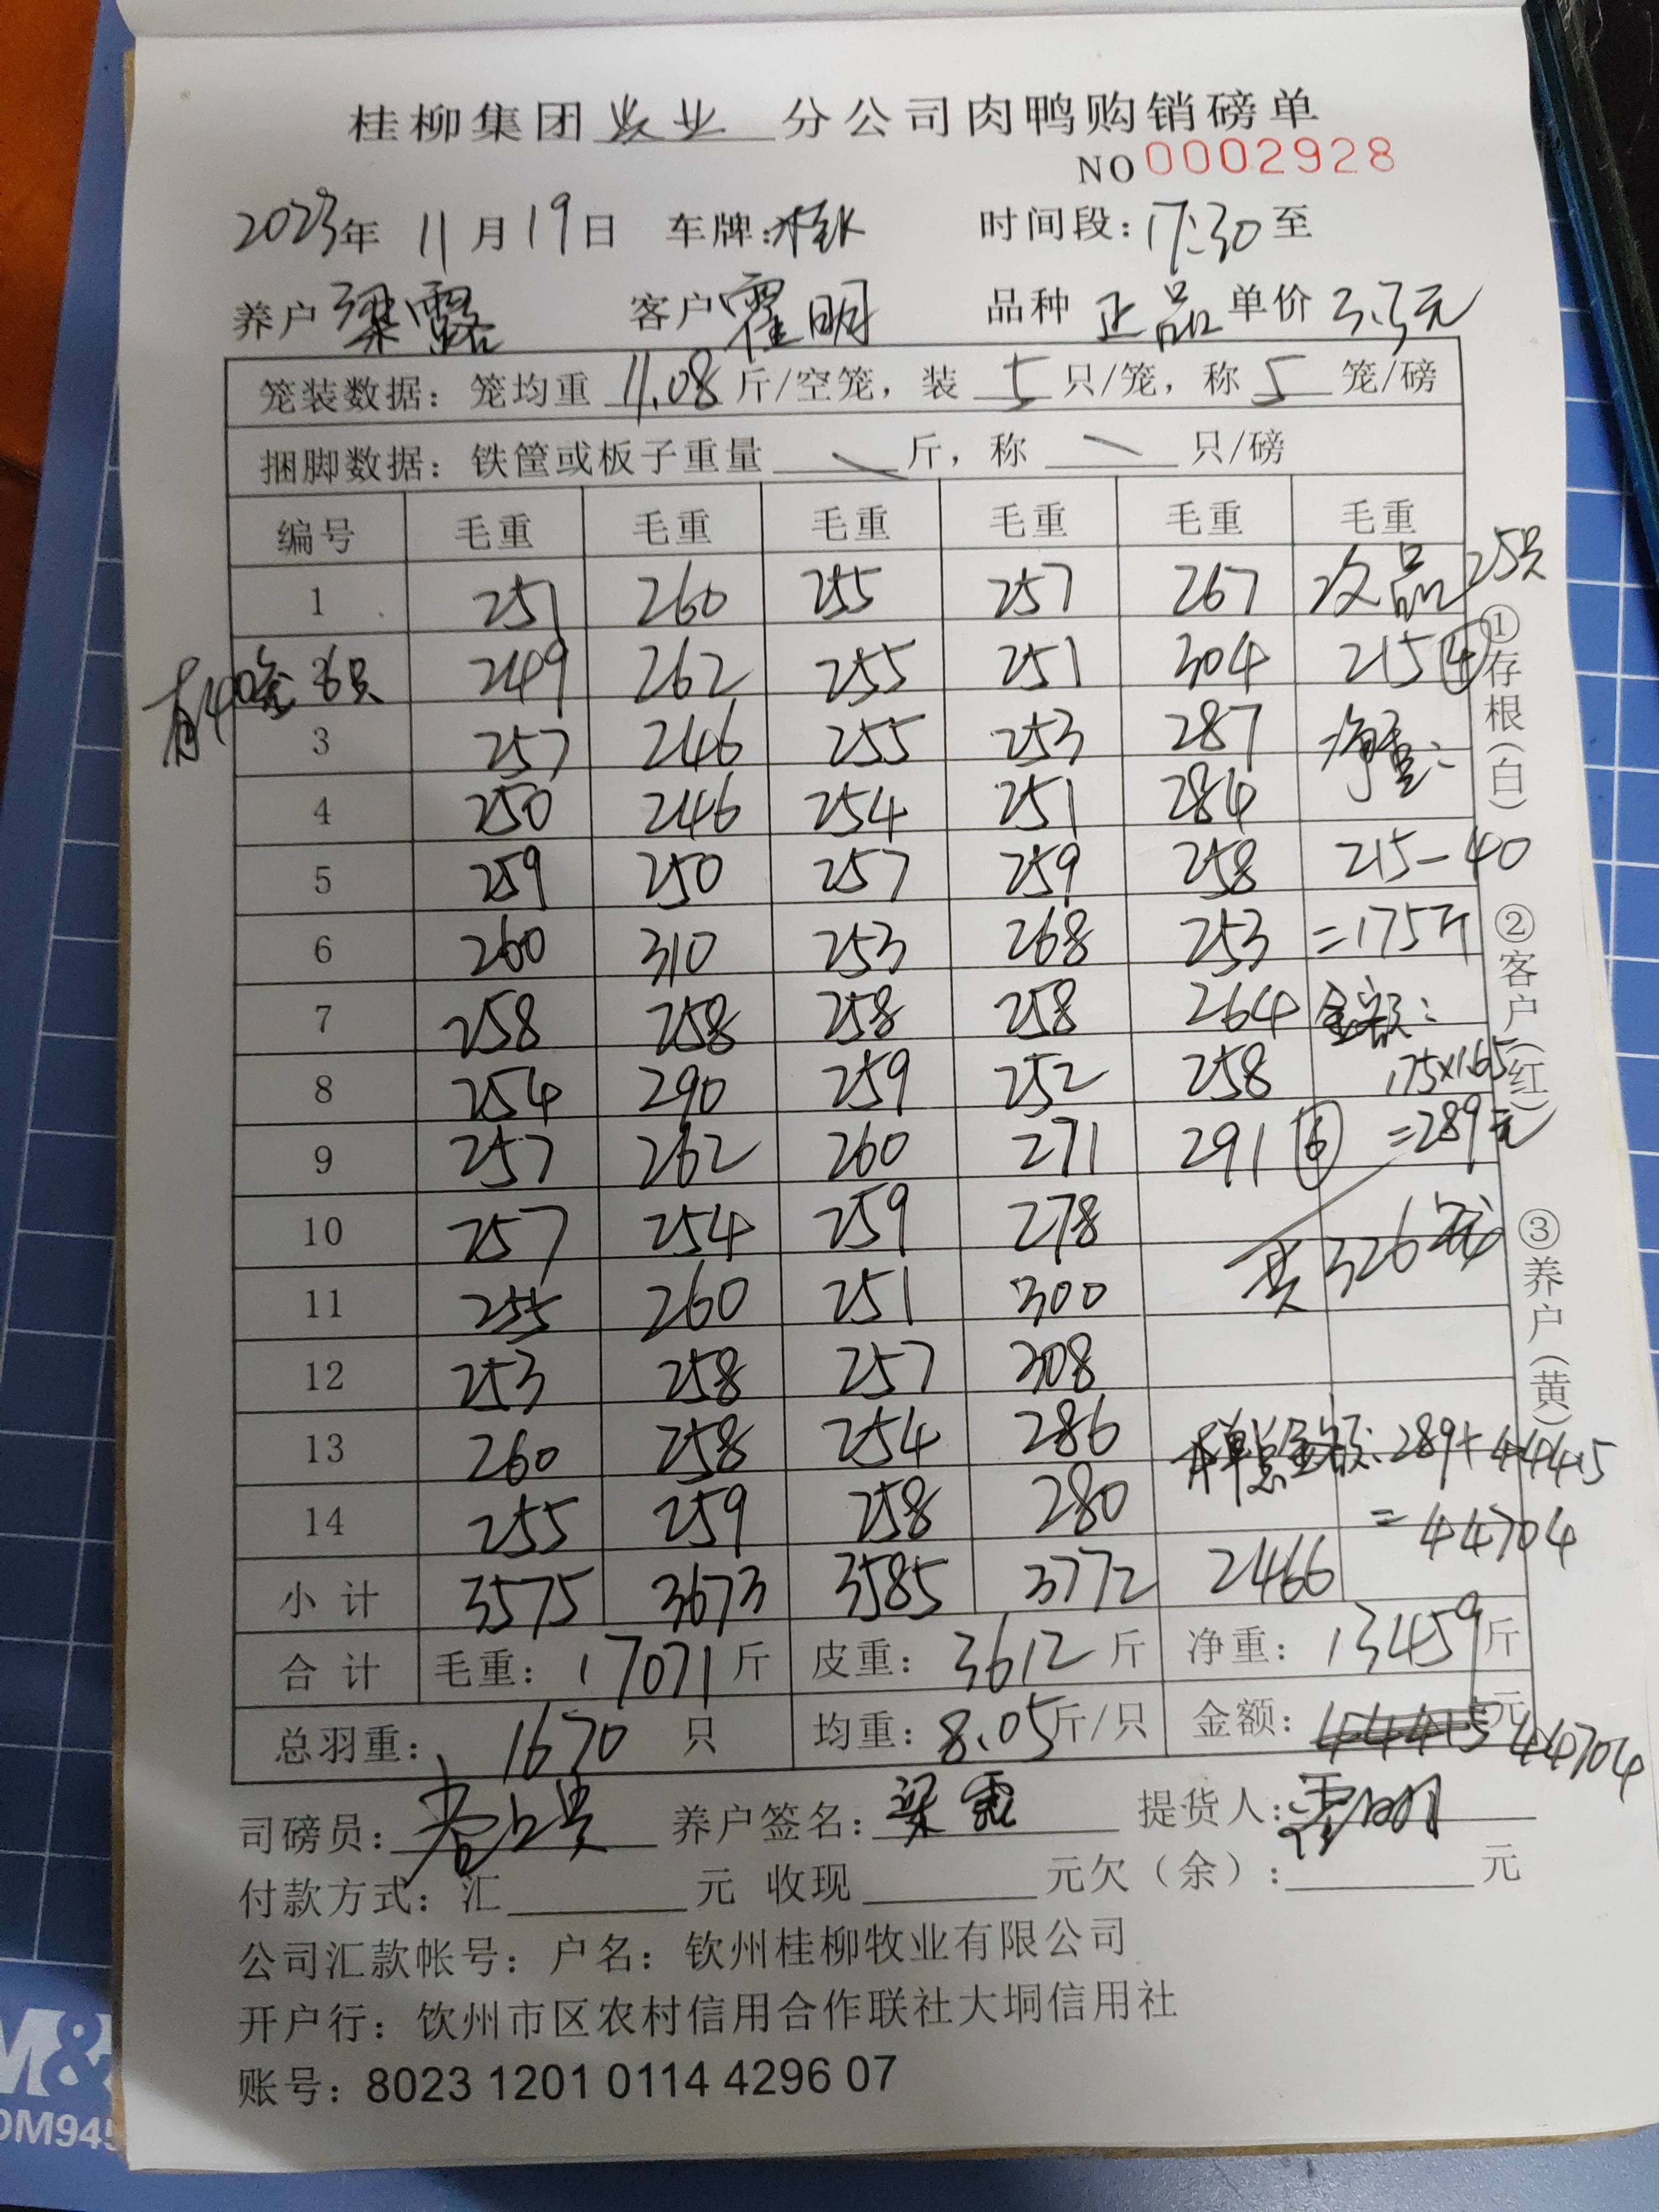 桂柳集团牧业分公司肉鸭购销磅单
NO 0002928
2023年 11月19日 车牌: 时间段:17:30至
养户 梁露 客户 霍明 品种 正品 单价 3.3元
笼装数据：笼均重 11.08 斤/空笼，装 5 只/笼，称 5 笼/磅
捆脚数据：铁筐或板子重量 \ 斤，称 \ 只/磅
编号 毛重 毛重 毛重 毛重 毛重 毛重
1 251 260 255 257 267 次品 25只
有40笼 6只 249 262 255 251 304 215 ④
3 257 246 255 253 287 净重:
4 250 246 254 251 284
5 259 250 257 259 258 215-40
6 260 310 253 268 253 =175斤
7 258 258 258 258 264 金额:
8 254 290 259 252 258 175×1.65
9 257 262 260 271 291 ⑥ =289元
10 257 254 259 278 共326笼
11 255 260 251 300
12 253 258 257 308
13 260 258 254 286 本单总金额:289+44415
14 255 259 258 280 =44704
小计 3575 3673 3585 3772 2466
合计 毛重：17071斤 皮重：3612斤 净重：13459斤
总羽重：1670 只 均重：8.05斤/只 金额：44415元 44704
司磅员： 养户签名：梁露 提货人：霍明
付款方式：汇 元 收现 元欠（余）： 元
公司汇款帐号：户名：钦州桂柳牧业有限公司
开户行：钦州市区农村信用合作联社大垌信用社
账号：8023 1201 0114 4296 07
①存根(白) ②客户(红) ③养户(黄)
M&
DM945